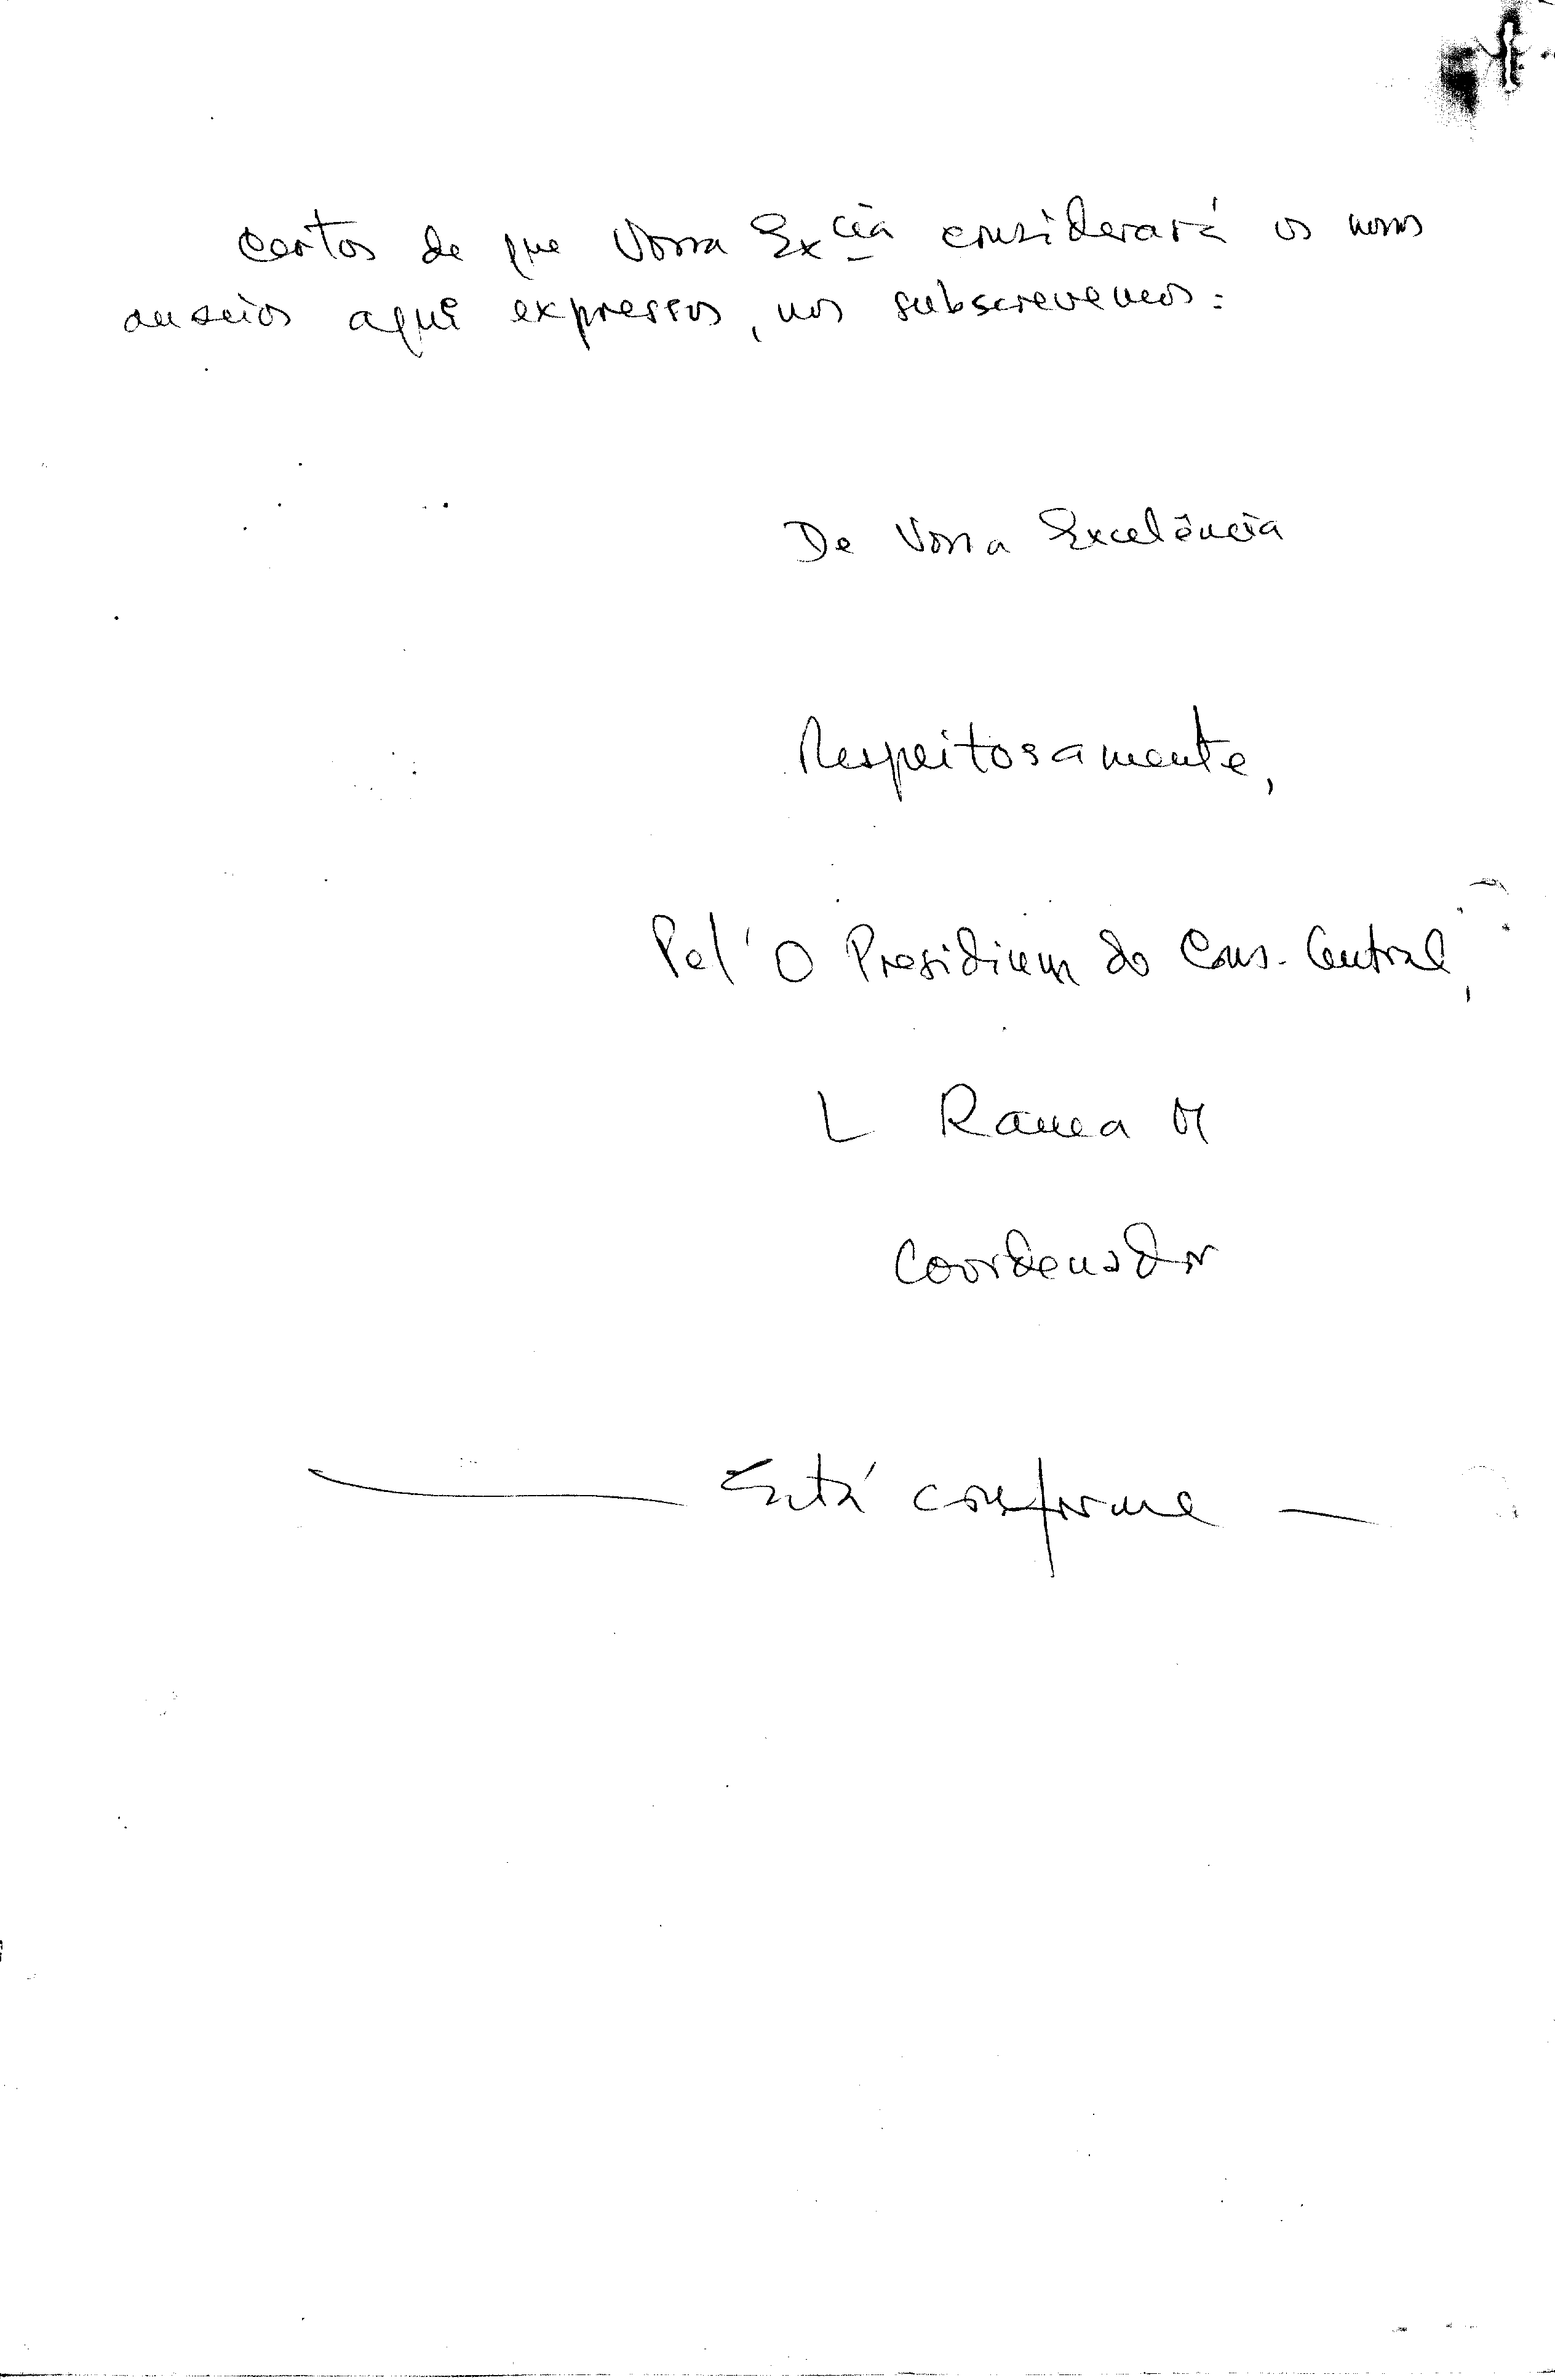 Certos de que Vossa Excia considerará os nossos
anseios aqui expressos, nos subscrevemos:
De Vossa Excelência
Respeitosamente,
Pel' O Presidium do Cons. Central,
L Ramea M
Coordenador
Está conforme